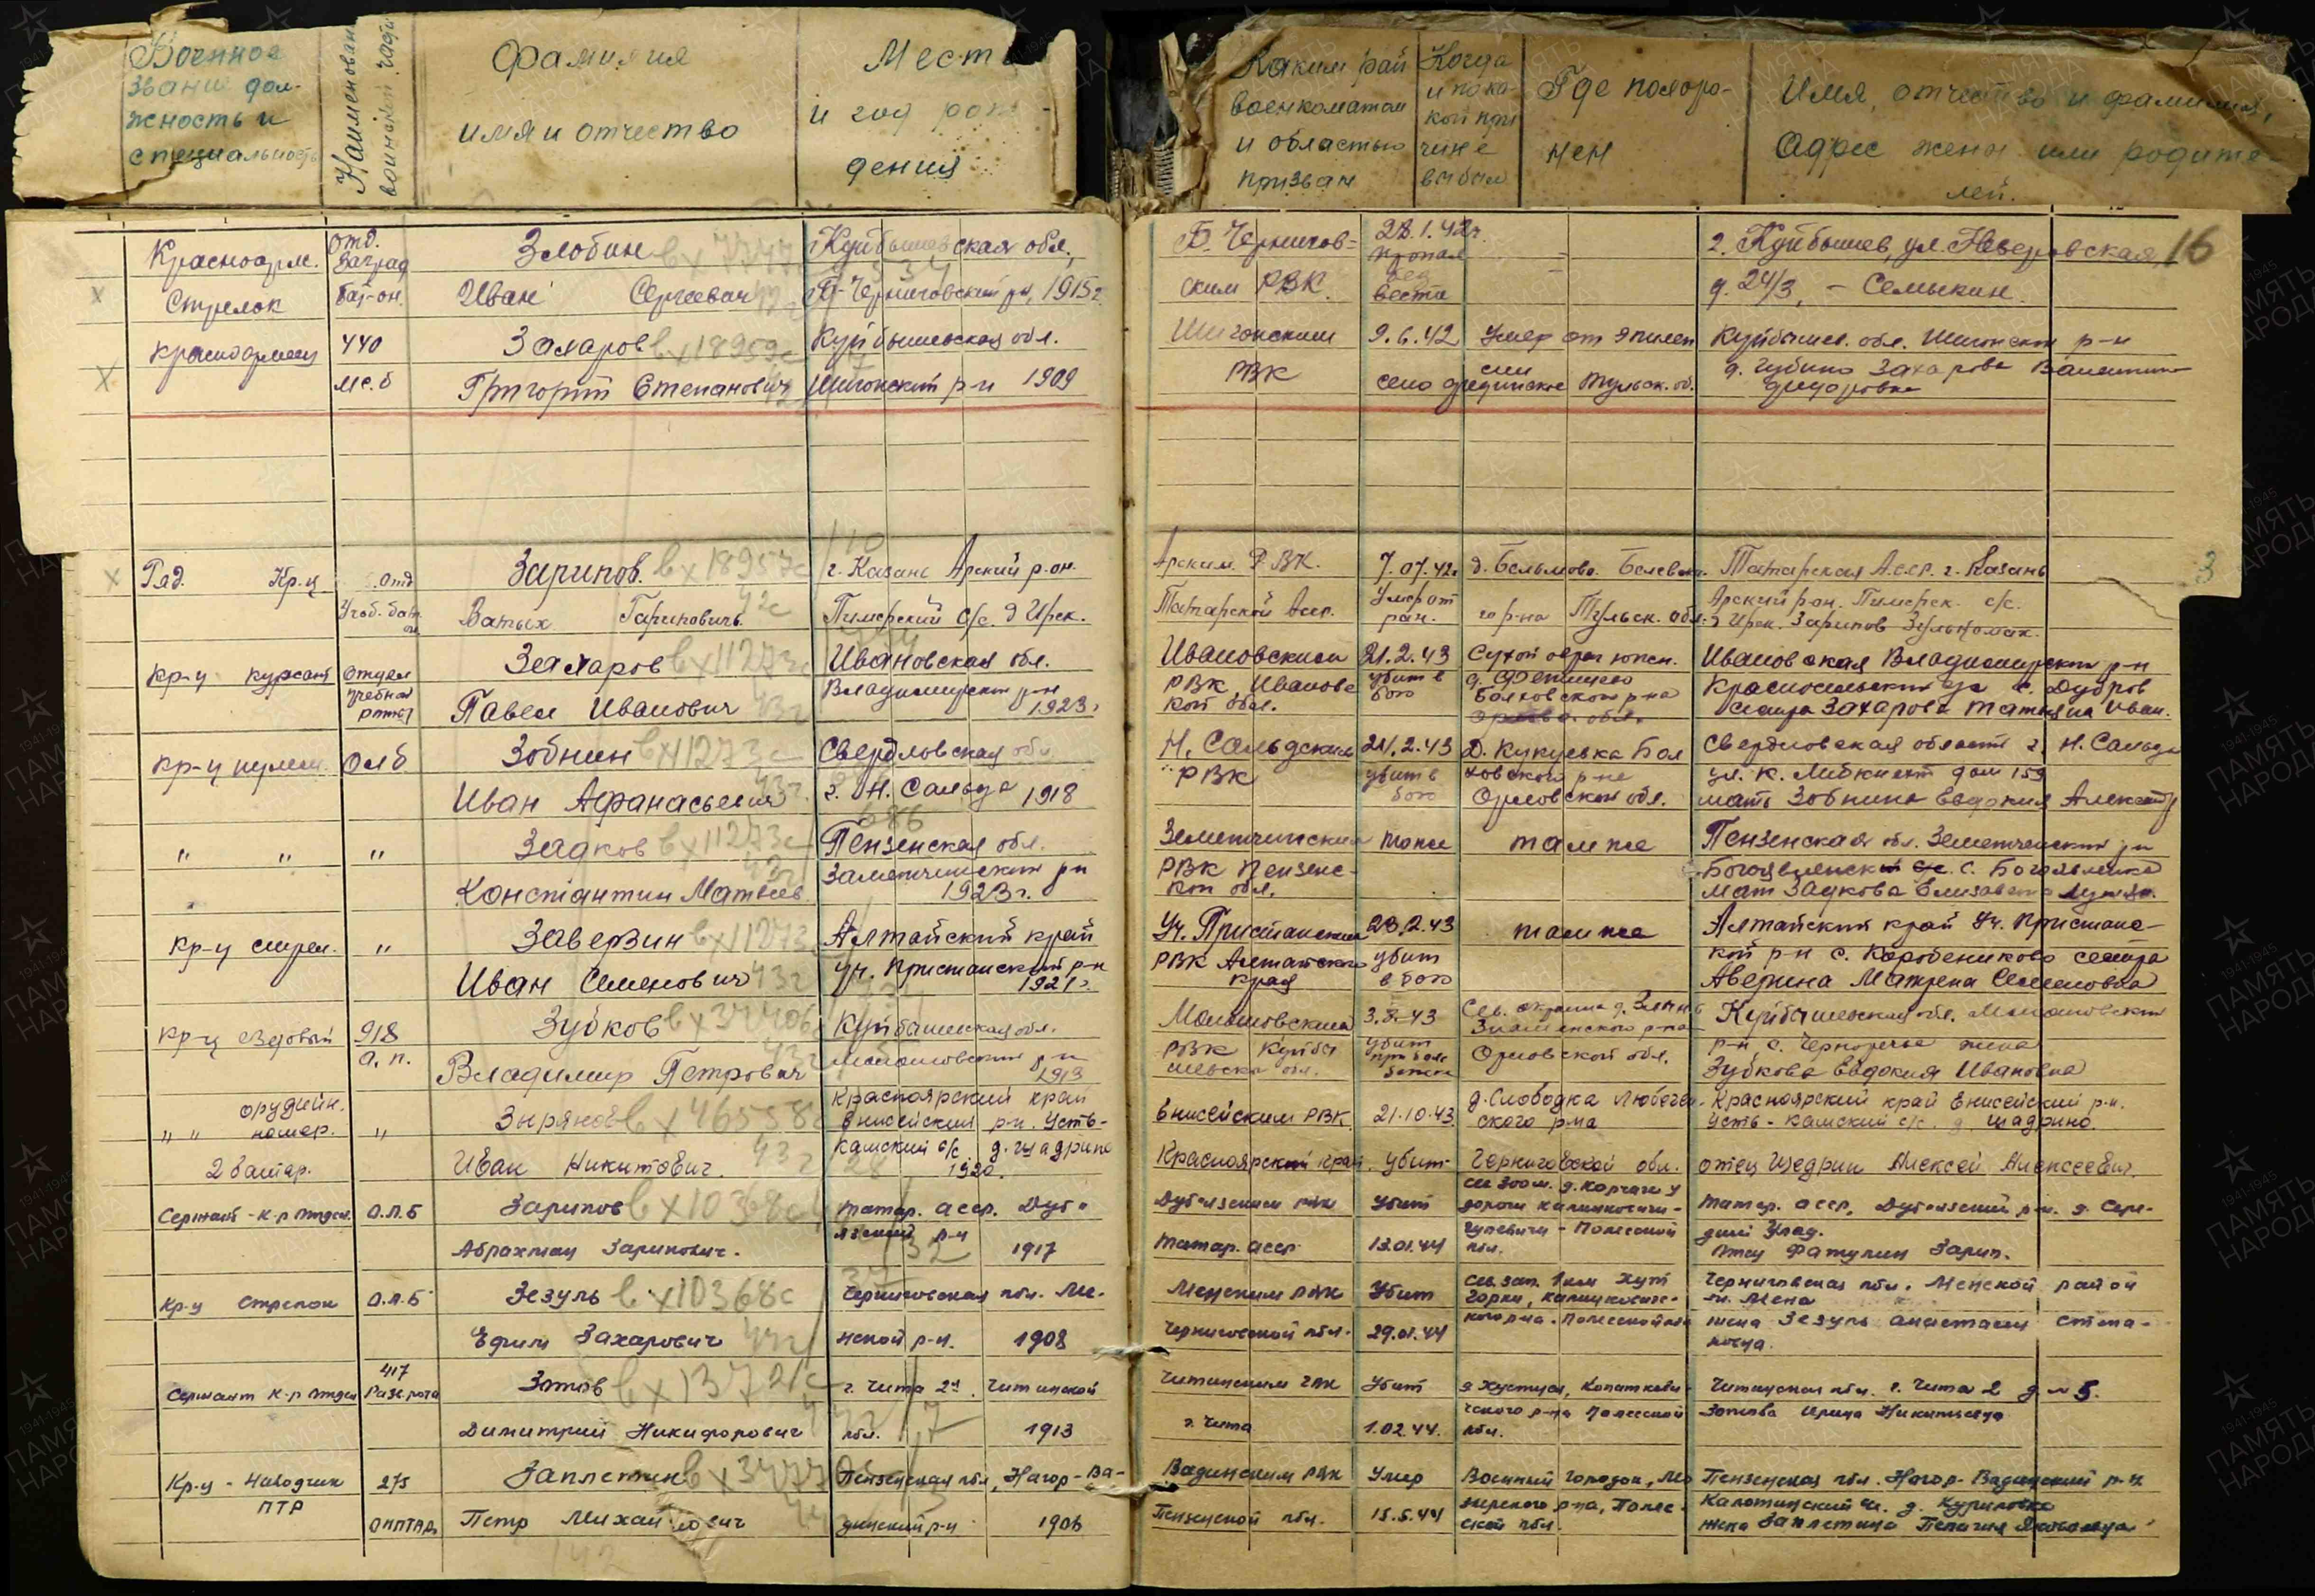 Военное звание должность и специальность
Наименован воинской части
Фамилия имя и отчество
Мест и год рож дения
Каким рай военкоматом и областью призван
Когда и по какой причине выбыл
Где похоронен
Имя, отчество и фамилия, Адрес жены или родителей.
16
Красноарм. Отд. Заград Злобин вх7747 Куйбышевская обл. Б. Чернигов= 28.1.42г. пропал г. Куйбышев, ул.
Стрелок бат-он. Иван Сергеевич Б-Черниговский рн, 1915г. ским РВК. без вести д. 24/3, - Семыкин
Красноармеец 440 Захаров вх18959с Куйбышевская обл. Шигонским 9.6.42 Умер от эпилеп Куйбышев. обл. Шигонский р-н
мс.б Григорий Степанович Шигонский р-н 1909 РВК сии село Тульск. об. д. Губино Захарова
3
Ряд. Кр.ц Отд Зарипов. вх18957с г. Казань Арский р.он. Арским РВК. 7.07.42г д. Татарская Асср. г. Казань
Учеб. бат. он Гарипович 42г с/с. д Ирек. Татарской Асср. Умер от ран. го р-на Тульск. обл. Арский р-он. с/с. д Ирек. Зарипов
Кр-ц курсант Отдел Захаров вх11273с Ивановская обл. Ивановским 21.2.43 Сухой овраг южн. Ивановская Владимирский р-н
учебная рота Павел Иванович 43г Владимирский р-н 1923г РВК Ивановской обл. убит в бою Болховского р-на обл. Красносельский с. Захарова Татьяна Иван.
Кр-ц пулем. ОЛБ Зобнин вх11273с Свердловская обл Н. Салдским 24.2.43 Д. Кукуевка Бол Свердловская область г. Н. Салда
Иван Афанасьевич 43г. г. Н. Салда 1918 РВК убит в бою ховского р-на Орловской обл. ул. К. Либкнехт дом 159 мать Зобнина Евдокия
686
" " " Задков вх11273с Пензенская обл. Земетчинским тоже там же Пензенская обл. Земетчинский р-н
Константин Матвеев. Заметчинский рн 1923г. РВК Пензенской обл. с/с. с. мат Задкова Елизавета
Кр-ц стрел. " Заверзин вх11273 Алтайский край Уч. Пристанский 23.2.43 там же Алтайский край Уч. Пристанс-
Иван Семенович 43г Уч. Пристанский р-н 1921г. РВК Алтайского края убит в бою кой р-н с. Коробейниково Аверина Матрена Семеновна
Кр-ц ездовый 918 Зубков вх37706 Куйбышевская обл. 3.8.43 Сев. окраина д. Куйбышевская обл.
а.п. Владимир Петрович 43г р-н 1913 РВК Куйбы шевской обл. убит Знаменского р-на Орловской обл. р-н с. Черноречье жена Зубкова Евдокия Ивановна
" " орудийн. номер. " Зырянов вх46558с Красноярский край Енисейский р-н. Усть- Енисейским РВК. 21.10.43. д. Слободка Любеч Красноярский край Енисейский р-н.
2 батар. Иван Никитович. 43г Камский с/с. д. Шадрино 1920. Красноярский край. убит ского р-на Черниговской обл. Усть-Камский с/с. д. Шадрино. отец Щедрин Алексей Алексеевич.
Сержант-к-р отдел. О.Л.Б Зарипов вх10368с Татар. АССР. Дуб- Дубъязским РВК Убит сев 300м. д. Корчаги у дороги Татар. АССР, Дубъязский р-н. д. Сере-
Абрахман Зарипович. язский р-н 1917 Татар. АССР 13.01.44 Полесской обл. дний Улад. Отец Фатулин Зарип.
Кр-ц стрелок О.Л.Б Зезуль вх10368с Черниговская обл. Ме- Менским РВК Убит сев. зап. 1км Хут Горки, Черниговская обл. Менской район
Ефим Захарович 44г нской р-н. 1908 Черниговской обл. 29.01.44 кого р-на. Полесской обл м. Мена жена Зезуль Анастасия Степа-новна.
Сержант к-р отдел 417 Разв. рота Зотов вх13721с г. Чита 2я, Читинской Читинским ГВК Убит Читинская обл. г. Чита 2 д. № 5.
Димитрий Никифорович обл. 1913 г. Чита 1.02.44. ческого р-на Полесской обл. Зотова Ирина Никитична
Кр-ц - Наводчик 275 Заплетин вх37770 Пензенская обл, Нагор-Ва- Вадинским РВК Умер Военный городок, Мо Пензенская обл. Нагор-Вадинский р-н
ПТР ОИПТАД Петр Михайлович динский р-н 1906 Пензенской обл. 15.5.44 зырского р-на, Полес-ской обл. д. Куриловка жена Заплетина Пелагия Яковлевна